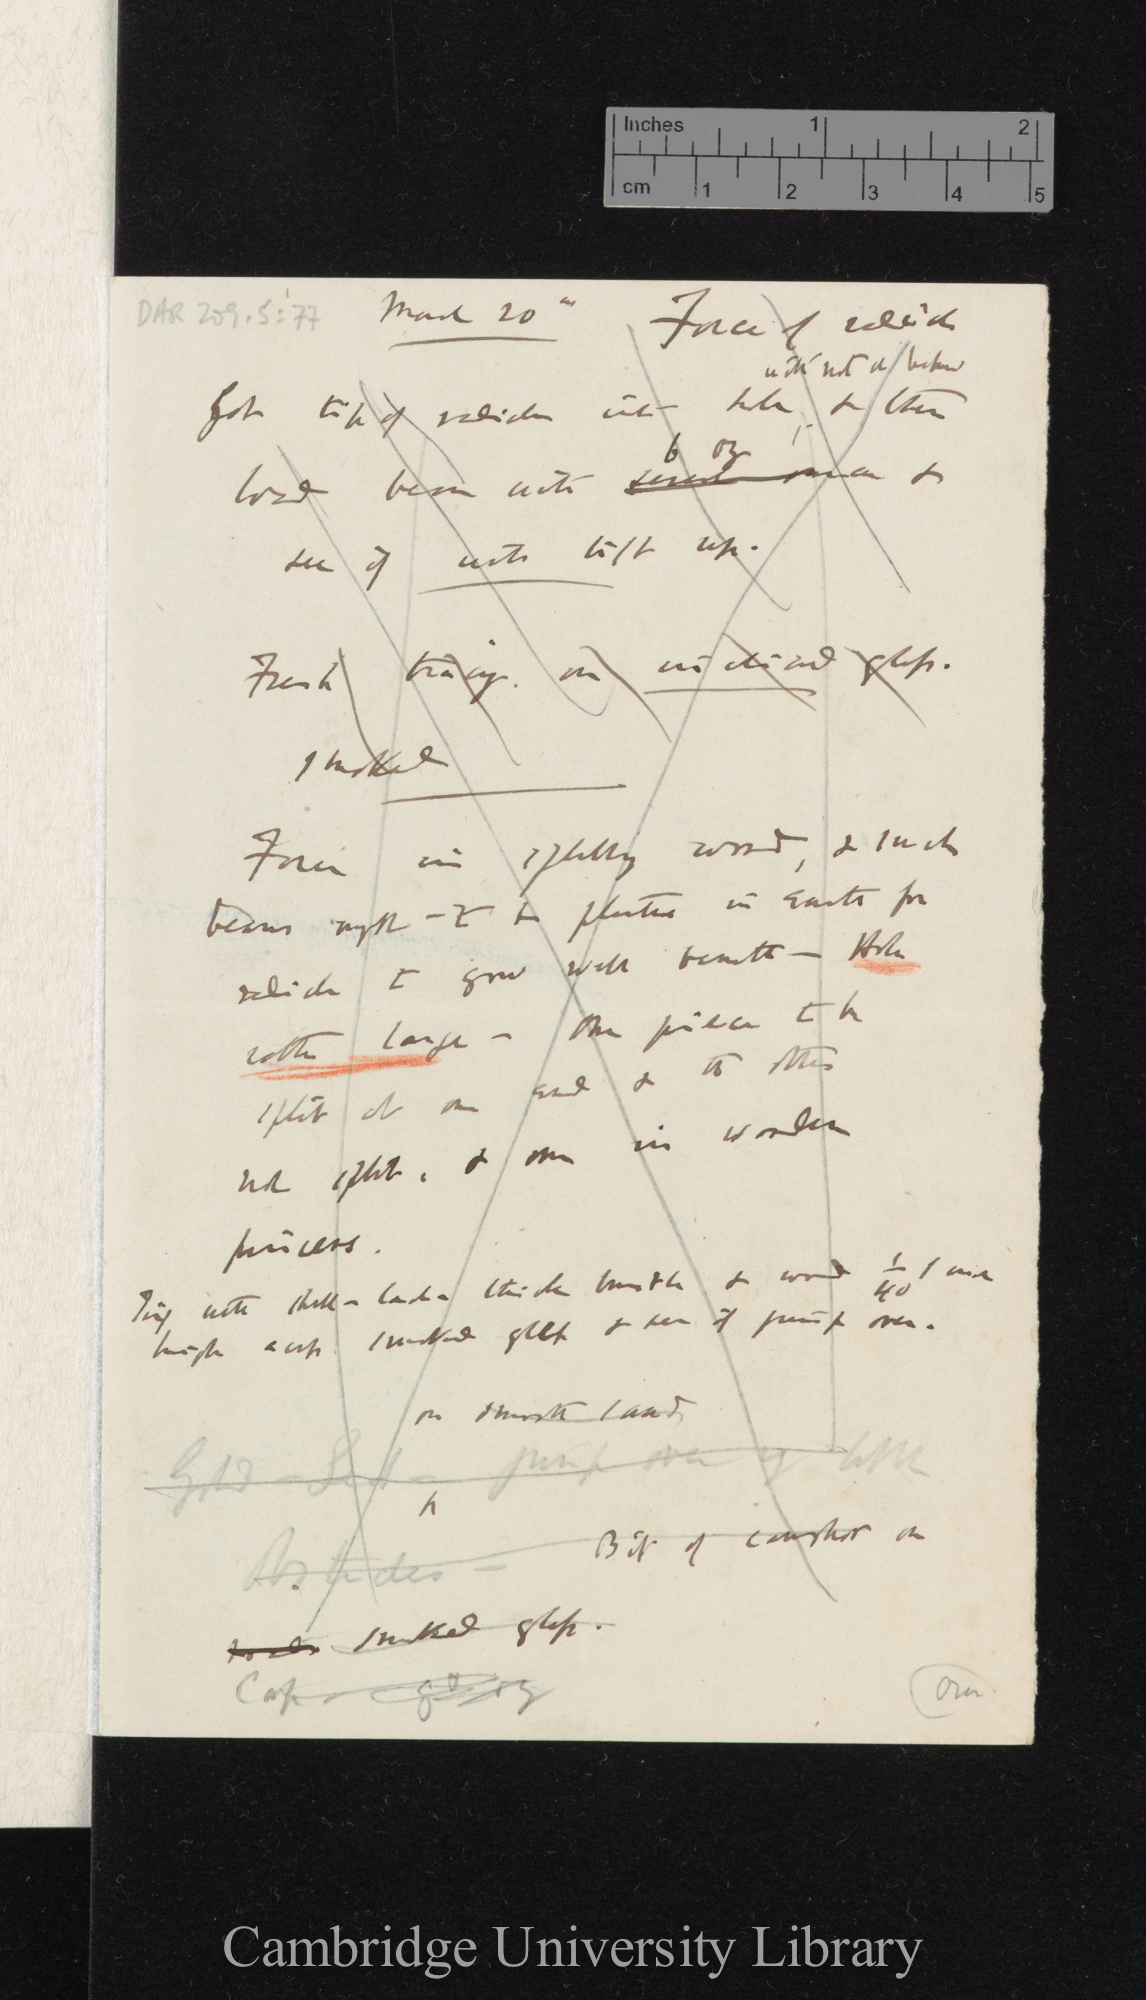 Inches 1 2
cm 1 2 3 4 5
DAR 209.5:77
March 20th Force of radicle
with not a/
Got tip of radicle into hole, & then
6 oz
load bean with several &
see if with lift up.
Fresh tracing on inclined glass.
smoked
Force in splitting wood, & such
beans ought to be planted in earth for
radicle to grow well beneath — Hole
rather large — One piece to be
split at one end & the other
not split, & one in wooden
pincers.
Try with shell-lac thick bristle & wood 1/40 inch
high across smoked glass & see if jump over.
on smooth sand,
Gold-Leaf — jump over of little
Obstacles — Bit of camphor on
smoked glass.
Over
Cambridge University Library